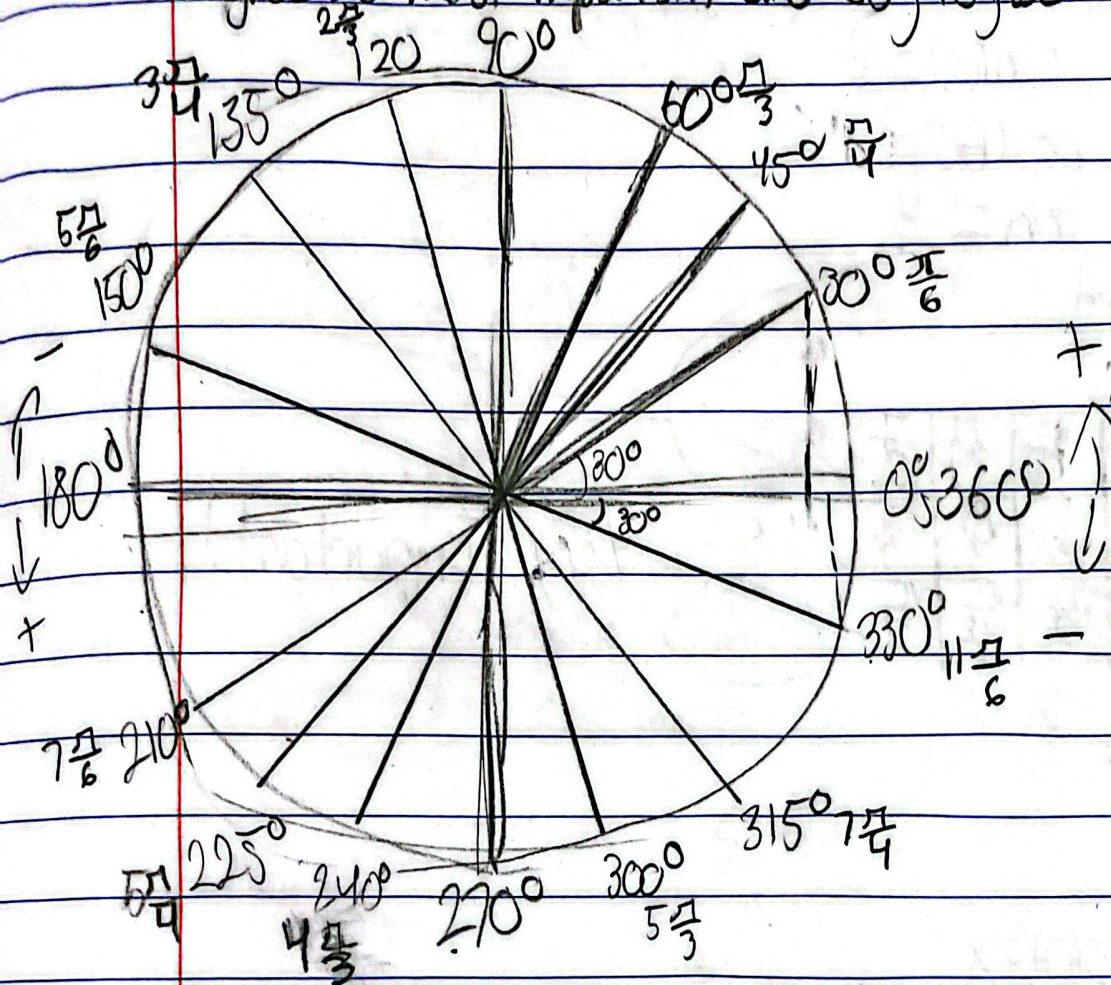 2π/3
120 90°
3π/4 135°
60° π/3
45° π/4
5π/6
150°
30° π/6
- +
30°
180° 0°,360°
30°
+ 330° 11π/6 -
7π/6 210°
315° 7π/4
5π/4 225° 240° 270° 300°
4π/3 5π/3